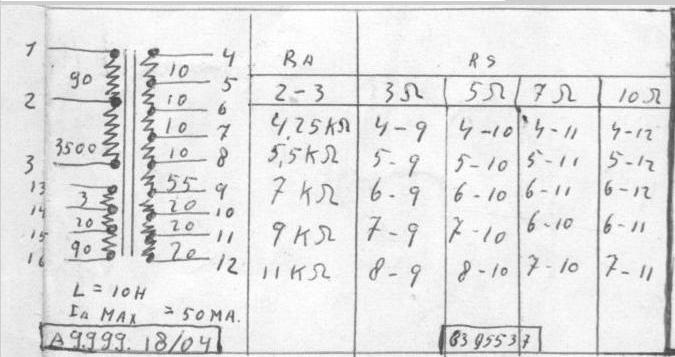 1 4 RA RS
90 10 5
2 10 6 2-3 3Ω 5Ω 7Ω 10Ω
10 7 4,25KΩ 4-9 4-10 4-11 4-12
3500 10 8 5,5KΩ 5-9 5-10 5-11 5-12
3
13 55 9 7 KΩ 6-9 6-10 6-11 6-12
3 20
14 10
20 20 11 9KΩ 7-9 7-10 6-10 6-11
15
90 20
16 12 11KΩ 8-9 8-10 7-10 7-11
L = 10H
IA MAX = 50MA.
A9999.18/04 8395537